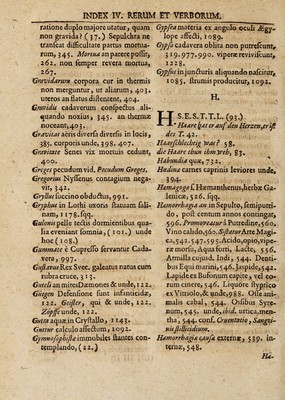 INDEX IV. RERUM ET VERBORUM.
ratione duplo majore utatur, quam
non gravida? (37.) Sepulchra ne
transeat difficultate partus mortua-
rum, 345. Mortua an parere possit,
261. non semper revera mortua,
267.
Gravidarum corpora cur in thermis
non merguntur, ut aliarum, 403.
uterus an flatus distentent, 404.
Gravidis cadaverum conspectus ali-
quando noxius, 345. an thermæ
noceant, 403.
Gravitas aëris diversa diversis in locis,
385. corporis unde, 398, 407.
Gravitate Senes vix mortuis cedunt,
400.
Greges pecudum vid. Pecudum Greges.
Gregorius Nyssenus contagium nega-
vit, 342.
Gryllus succino obductus, 991.
Gryphus in Lothi uxore statuam sali-
nam, 1178. sqq.
Gulonis pelle tectis dormientibus qua-
lia eveniant somnia, (101.) unde
hoc (108.)
Gummate è Cupresso servantur Cada-
vera, 997.
Gustavus Rex Svec. galeatus natus cum
rubra cruce, 313.
Guteli an mites Dæmones & unde, 122.
Gütgen Defensione sunt infanticidæ,
122. Geister, qui & unde, 122.
Zöpffe unde, 122.
Gutta aquæ in Crystallo, 1143.
Guttur calculo affectum, 1092.
Gymnosophistæ immobiles stantes con-
templando, (22.)
Gypsea materia ex angulo oculi Ægy-
lope affecti, 1089.
Gypso cadavera oblita non putrescunt,
319. 977. 990. viperæ reviviscunt,
1228.
Gypsus in juncturis aliquando nascitur,
1085. strumis producitur, 1091.
H.
H. S. E. S. T. T. L. (93.)
Haare hat er auf den Herzen, er ist
des T. 42.
Haarschlechtig was? 58.
die Haare thun ihm weh, 83.
Habundia quæ, 732.
Hædina carnes caprinis leviores unde,
394.
Hæmagoga f. Hæmanthenus, herba Gale-
nicæ, 526. sqq.
Hæmorrhagia an in Sepulto, semiputri-
do, post centum annos contingat,
596. Promovetur à Putredine, 560.
Vino calido, 560. Sistatur Arte Magi-
ca, 542. 547. 595. Acido, opio, vipe-
ræ morsu, Aqua forti, Lacte, 536.
Armilla cujusd. Inds, 544. Denti-
bus Equi marini, 545. Jaspide, 542.
Lapide ex Bufonum capita, vel eo-
rum cinere, 546. Liquore styptico
ex Vitriolo, & unde, 988. Osse ani-
malis cabal, 544. Ossibus Syre-
num, 545. unde, ibid. urtica, men-
tha, 544. conf. Cruentatio, Sangui-
nis stillicidium.
Hæmorrhagiæ causa externæ, 539. in-
ternæ, 548.
Hæ-